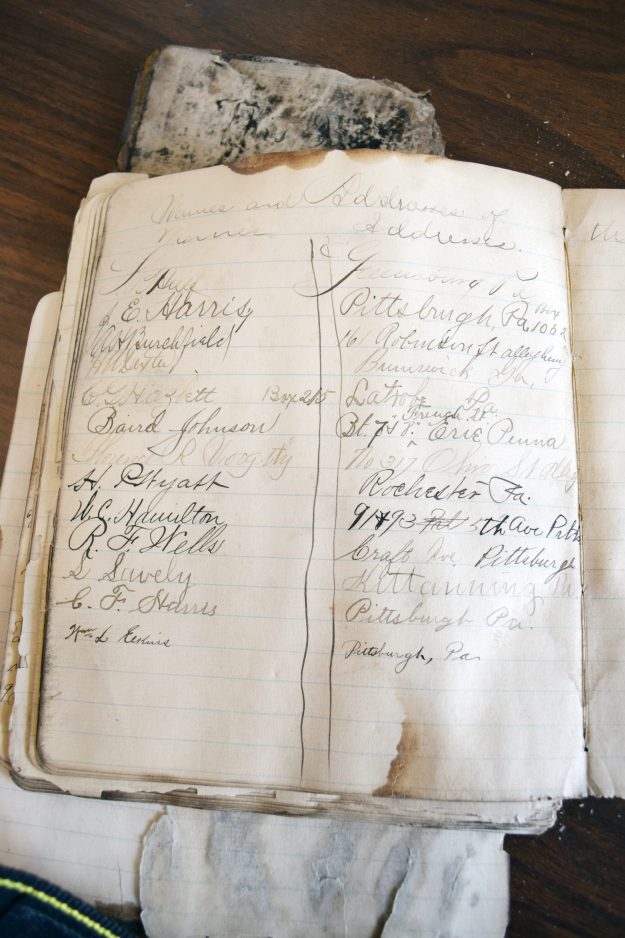 Names and Addresses of
Names & Addresses.
Greensburg Pa
J E. Harris, Pittsburgh, Pa, Box 1062
A H Burchfield 161 Robinson St allegheny
Brunswick Ga,
C. G. Hazlett Box 215 Latrobe Pa.
Baird Johnson Bl. 7th & French St. Erie Penna
No 317 Ohio St alleg
H. P. Wyatt Rochester Pa.
W. C. Hamilton 91493 Pat 5th Ave Pitts
R. F. Wells Craft Ave Pittsburgh
S Savely Kittanning Pa.
C. F. Harris Pittsburgh Pa.
Wm L Eekins Pittsburgh, Pa